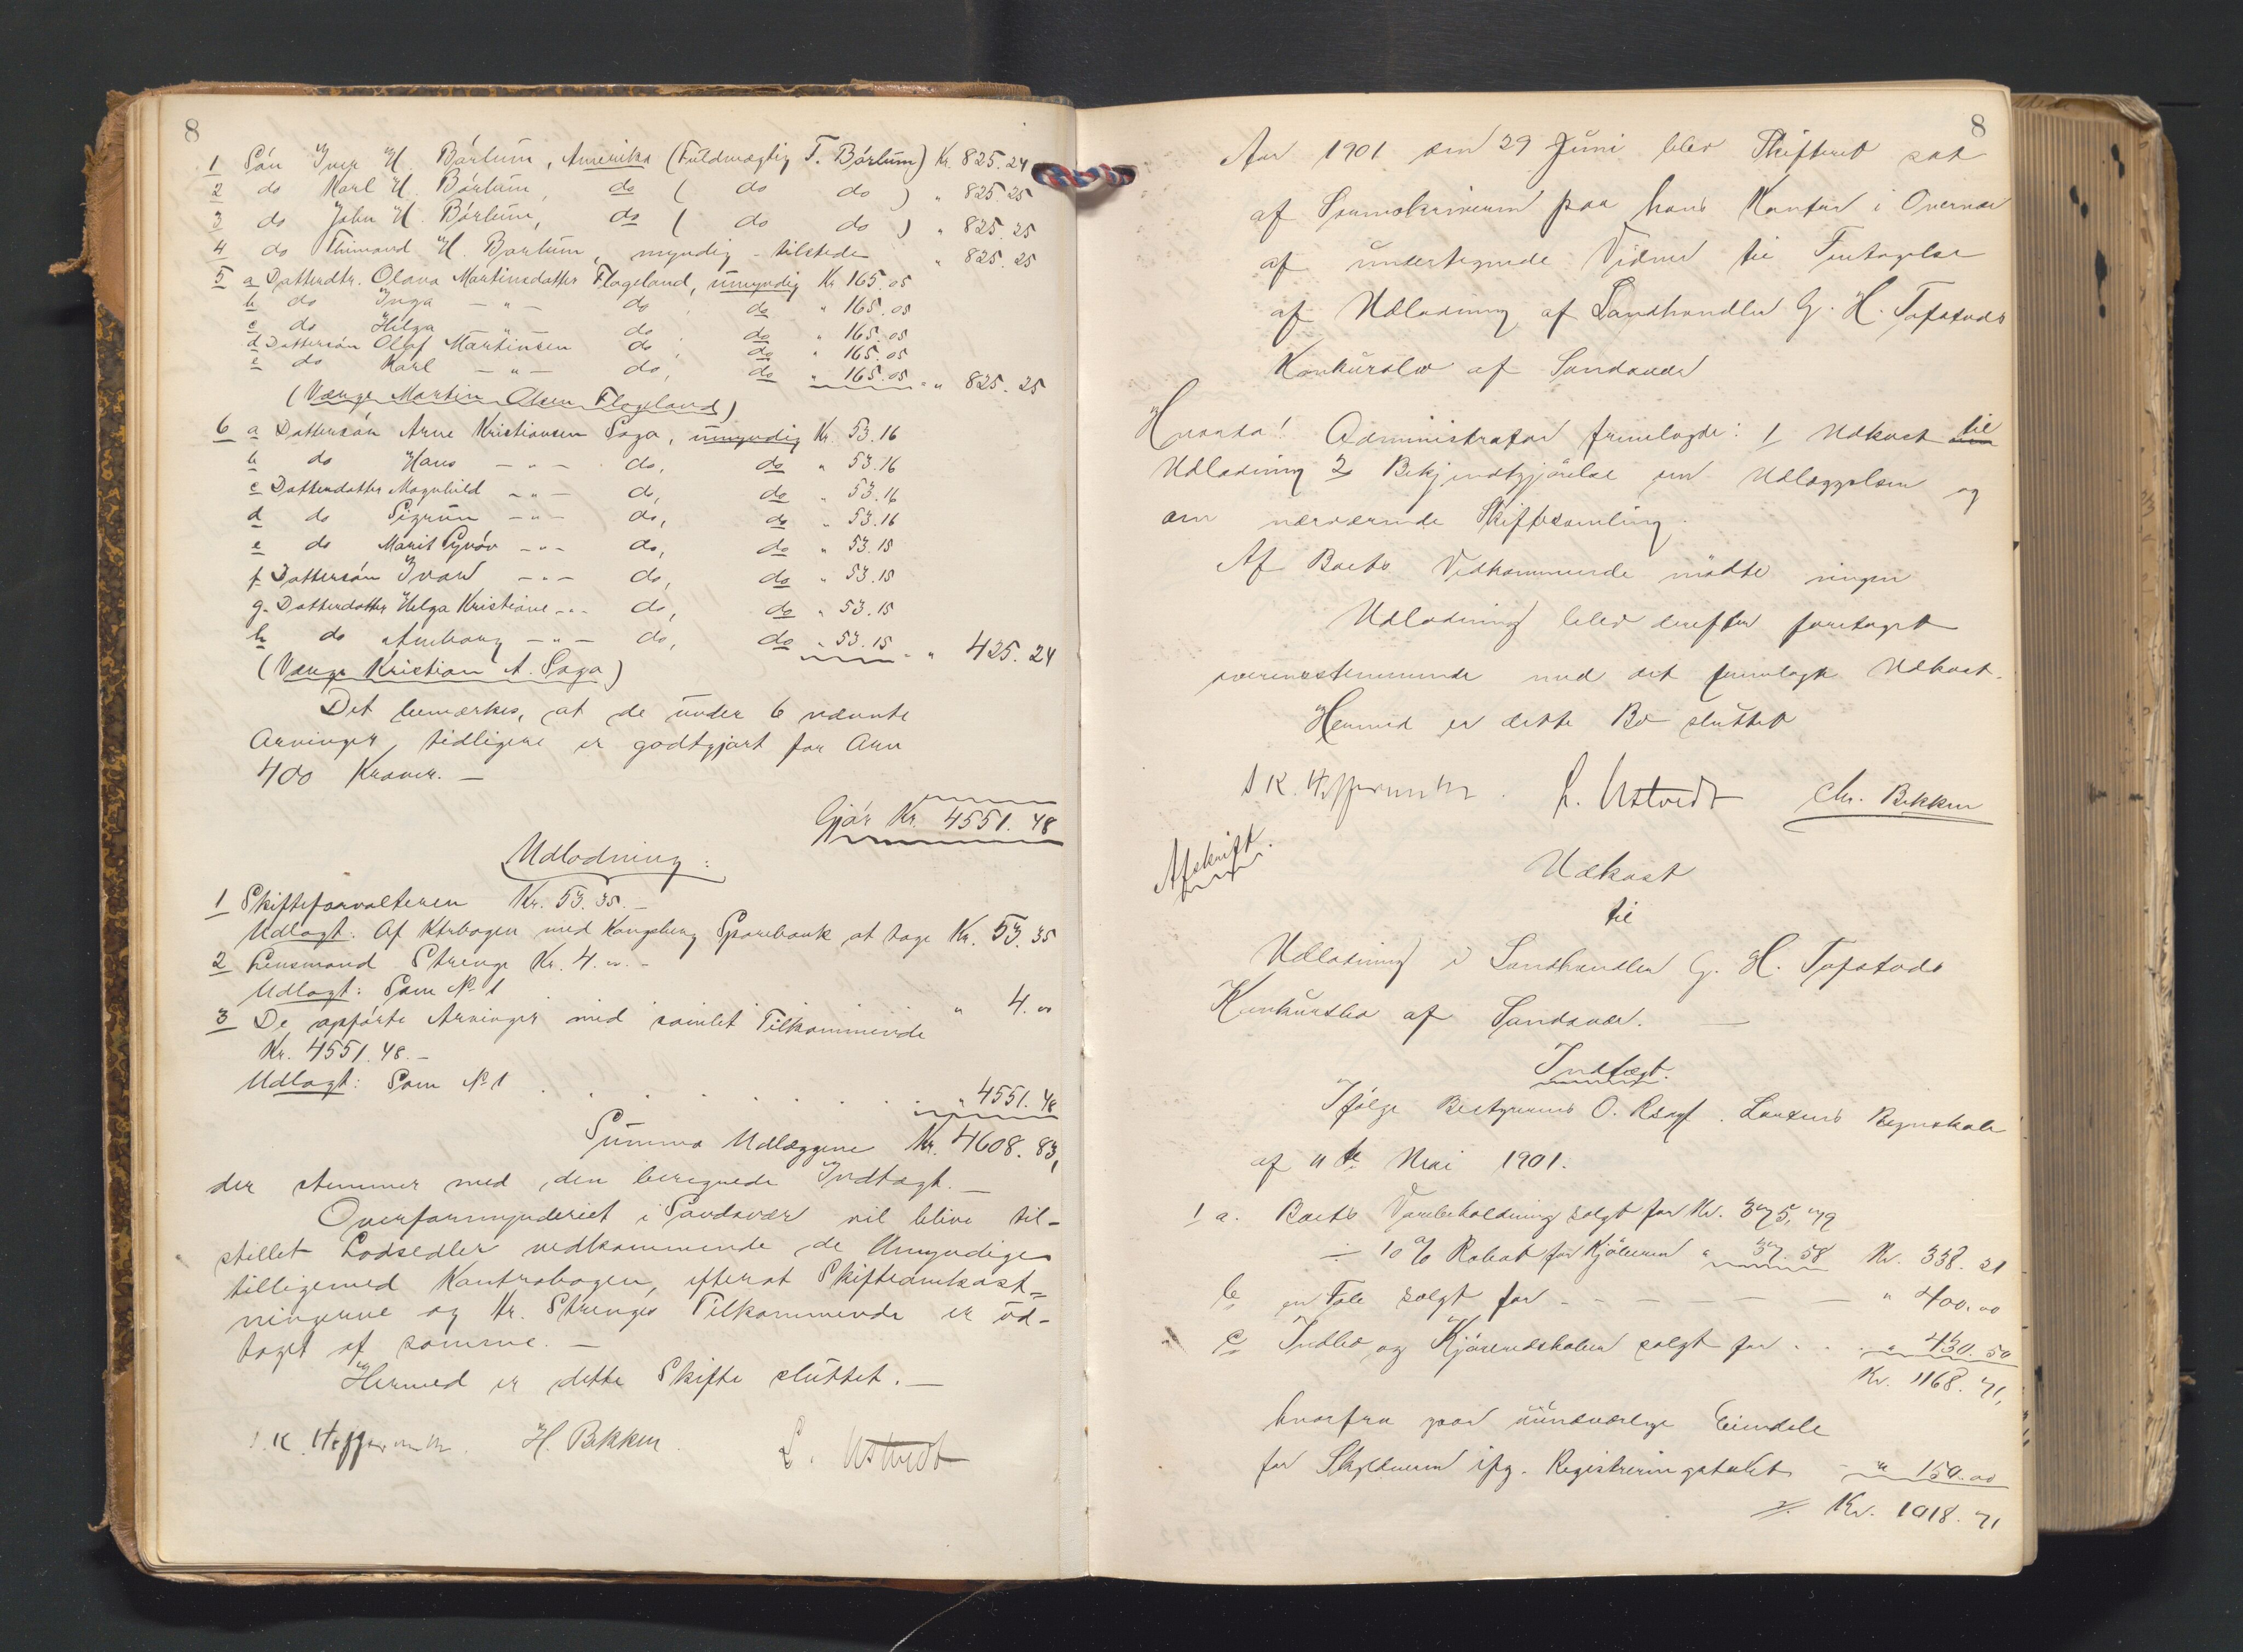 8
1 Sön Iver H. Bårlum, Amerika (Fuldmægtig T. Bårlum) Kr. 825.24
2 do Karl H. Bårlum, do ( do do ) " 825.25
3 do John H. Bårlum, do ( do do ) " 825.25
4 do Thimand H. Bårlum, myndig - tilstede " 825.25
5 a Datterdtr. Olava Martinsdatter Flageland, umyndig Kr. 165.05
b do Inga — " — do , do " 165.05
c do Helga " do do " 165.05
d Dattersön Olaf Martinsen do , do " 165.05
e do Karl — " — do, do " 165.05 - " 825.25
(Værge Martin Olsen Flageland)
6 a Dattersön Arne Kristiansen Saga, umyndig Kr. 53.16
b do Hans — " — do, do " 53.16
c Datterdatter Magnhild — " — do, do " 53.16
d do Sigrun — " — do, do " 53.16
e do Marit Synöv — " — do, do " 53.15
f Dattersön Ivar — " — do, do " 53.15
g. Datterdatter Helga Kristiane - " - do, do " 53.15
h do Amborg — " — do, do " 53.15 - " 425.24
(Værge Kristian A. Saga)
Det bemærkes, at de under 6 nævnte
Arvinger, tidligere er godtgjort for Arv
400 Kroner. —
Gjör Kr. 4551.48
Udlodning:
1 Skifteforvalteren Kr. 53.35. —
Udlagt: Af Ktrbogen med Kongsberg Sparebank at tage Kr. 53.35
2 Lensmand Strenge Kr. 4.00. -
Udlagt: Som No 1 . " 4.00
3 De opförte Arvinger med samlet Tilkommende
Kr. 4551.48. -
Udlagt: Som No 1 . . . . . . . . " 4551.48
Summa Udlæggene Kr. 4608.83,
der stemmer med den beregnede Indtægt. —
Overformynderiet i Sandsvær vil blive til-
stillet Lodsedler vedkommende de Umyndige
tilligemed Kontrabogen, efterat Skifteomkost=
ningerne og Hr. Strenges Tilkommende er ud-
taget af samme. —
Hermed er dette Skifte sluttet. —
H. Bekken. L. Ustvedt
8
Aar 1901 den 29 Juni blev Skifteret sat
af Sorenskriveren paa hans Kontor i
af undertegnede Vidner til Foretagelse
af Udlodning af Landhandler G. H. Tafstads
Konkursbo af Sandsvær
Hvorda! Administrator fremlagde: 1 Udkast til
Udlodning 2 Bekjendtgjörelse om Udlæggelsen og
om nærværende Skiftesamling.
Af Boets Vedkommende mödte ingen
Udlodning blev derefter foretaget
overensstemmende med det fremlagte Udkast.
Hermed er dette Bo sluttet
L. Ustvedt Chr. Bekken
Afskrift.
Udkast
til
Udlodning i Landhandler G. H. Tafstads
Konkursbo af Sandsvær. —
Indtægt.
Ifölge Bestyrerens O. Larsens Regnskab
af 11te Mai 1901.
1 a. Boets Varebeholdning solgt for Kr. 375,79
÷ 10 % Rabat for Kjöberen " 37.58 Kr. 338.21
b en Fole solgt for — — — — — " 400.00
c Indbo og Kjöreredskaber solgt for . . " 430.50
Kr. 1168.71,
hvorfra gaar uundværlige Eiendele
for Skyldneren ifg. Registreringstakst - " 150.00
Kr. 1018.71